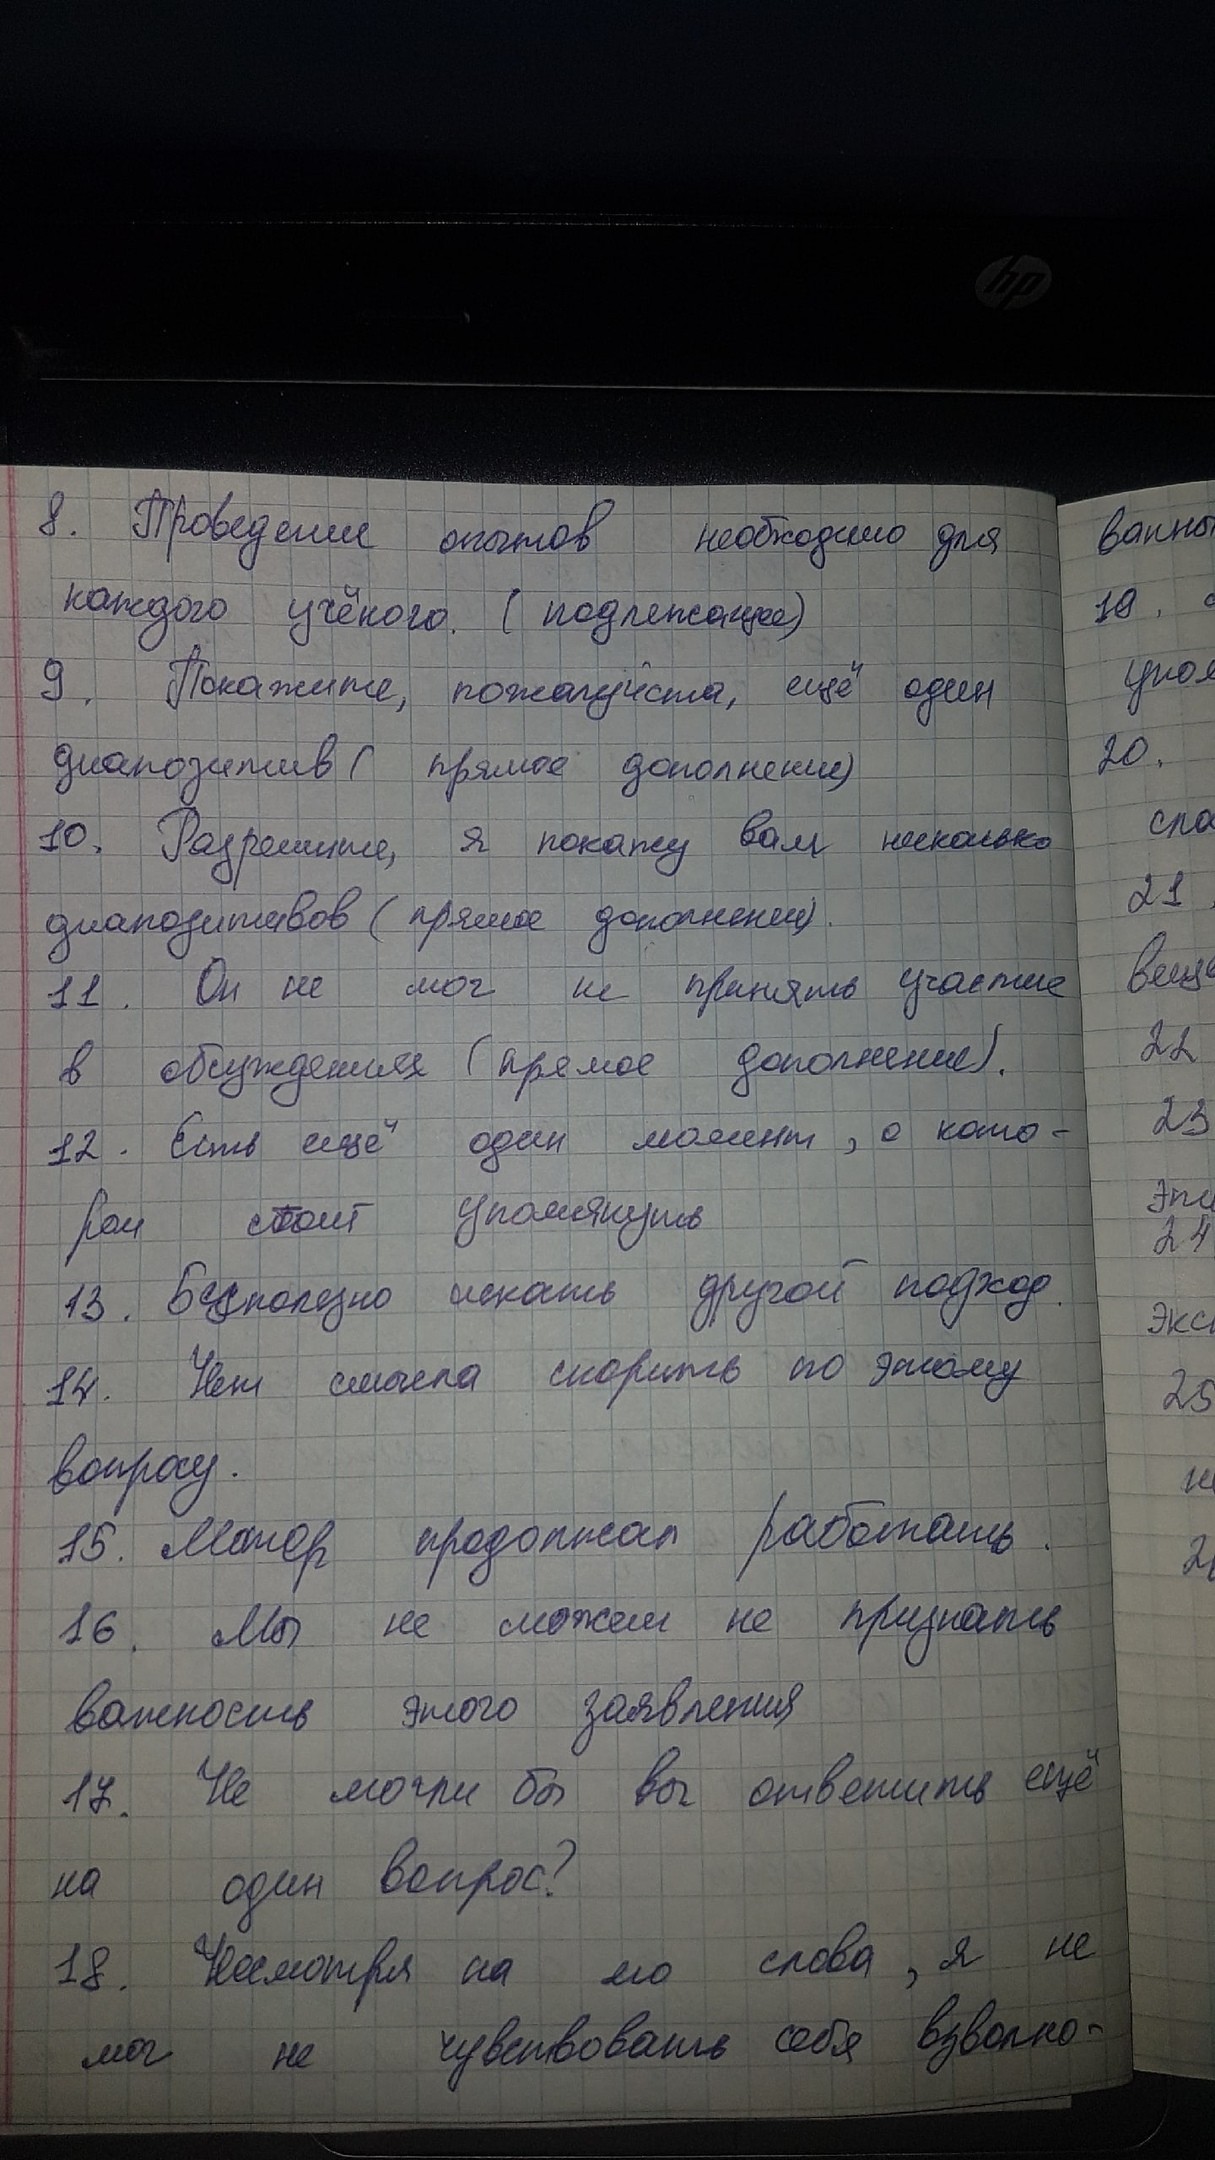 hp
8. Проведение опытов необходимо для
каждого учёного. (подлежащее)
9. Покажите, пожалуйста, ещё один
диапозитив (прямое дополнение)
10. Разрешите, я покажу вам несколько
диапозитивов (прямое дополнение).
11. Он не мог не принять участие
в обсуждениях (прямое дополнение).
12. Есть ещё один момент, о кото-
ром стоит упомянуть
13. Бесполезно искать другой подход.
14. Нет смысла спорить по этому
вопросу.
15. Мотор продолжал работать.
16. Мы не можем не признать
важность этого заявления
17. Не могли бы вы ответить ещё
на один вопрос?
18. Несмотря на его слова, я не
мог не чувствовать себя взволно-
ванны
19.
упом
20.
21.
22
23
24
экс
25